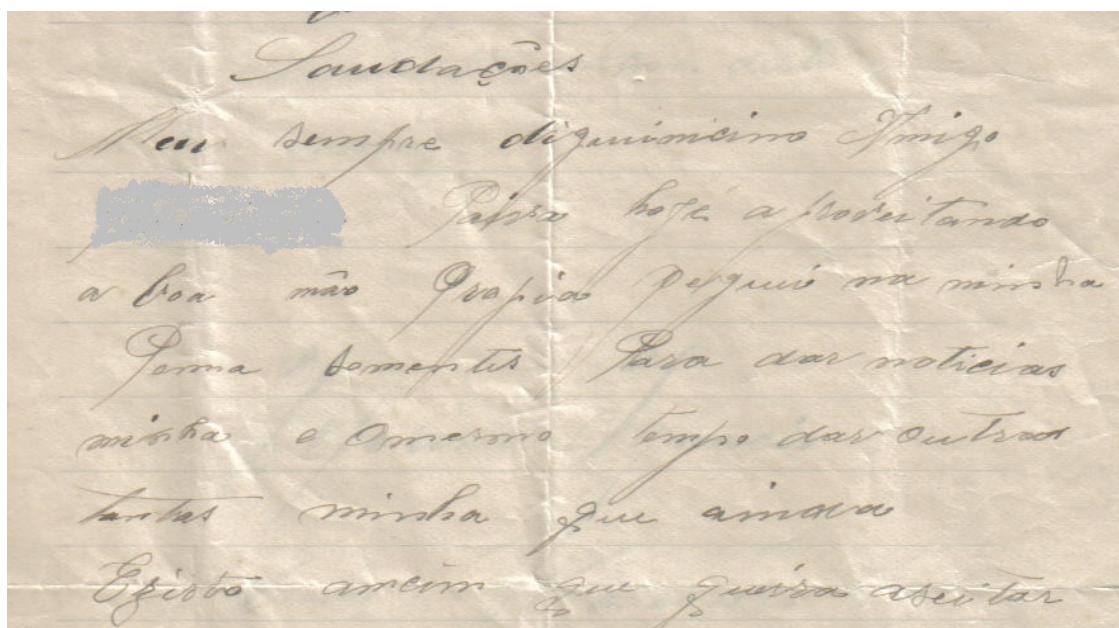 Saudações
Meu sempre diguinicimo Amigo
Paira hoje a proveitando
a boa mão Propia peguei na minha
Penna sementes Para dar noticias
minha e Omesmo tempo dar outras
tantas minha que ainda
Egisto ancim que queira aseitar